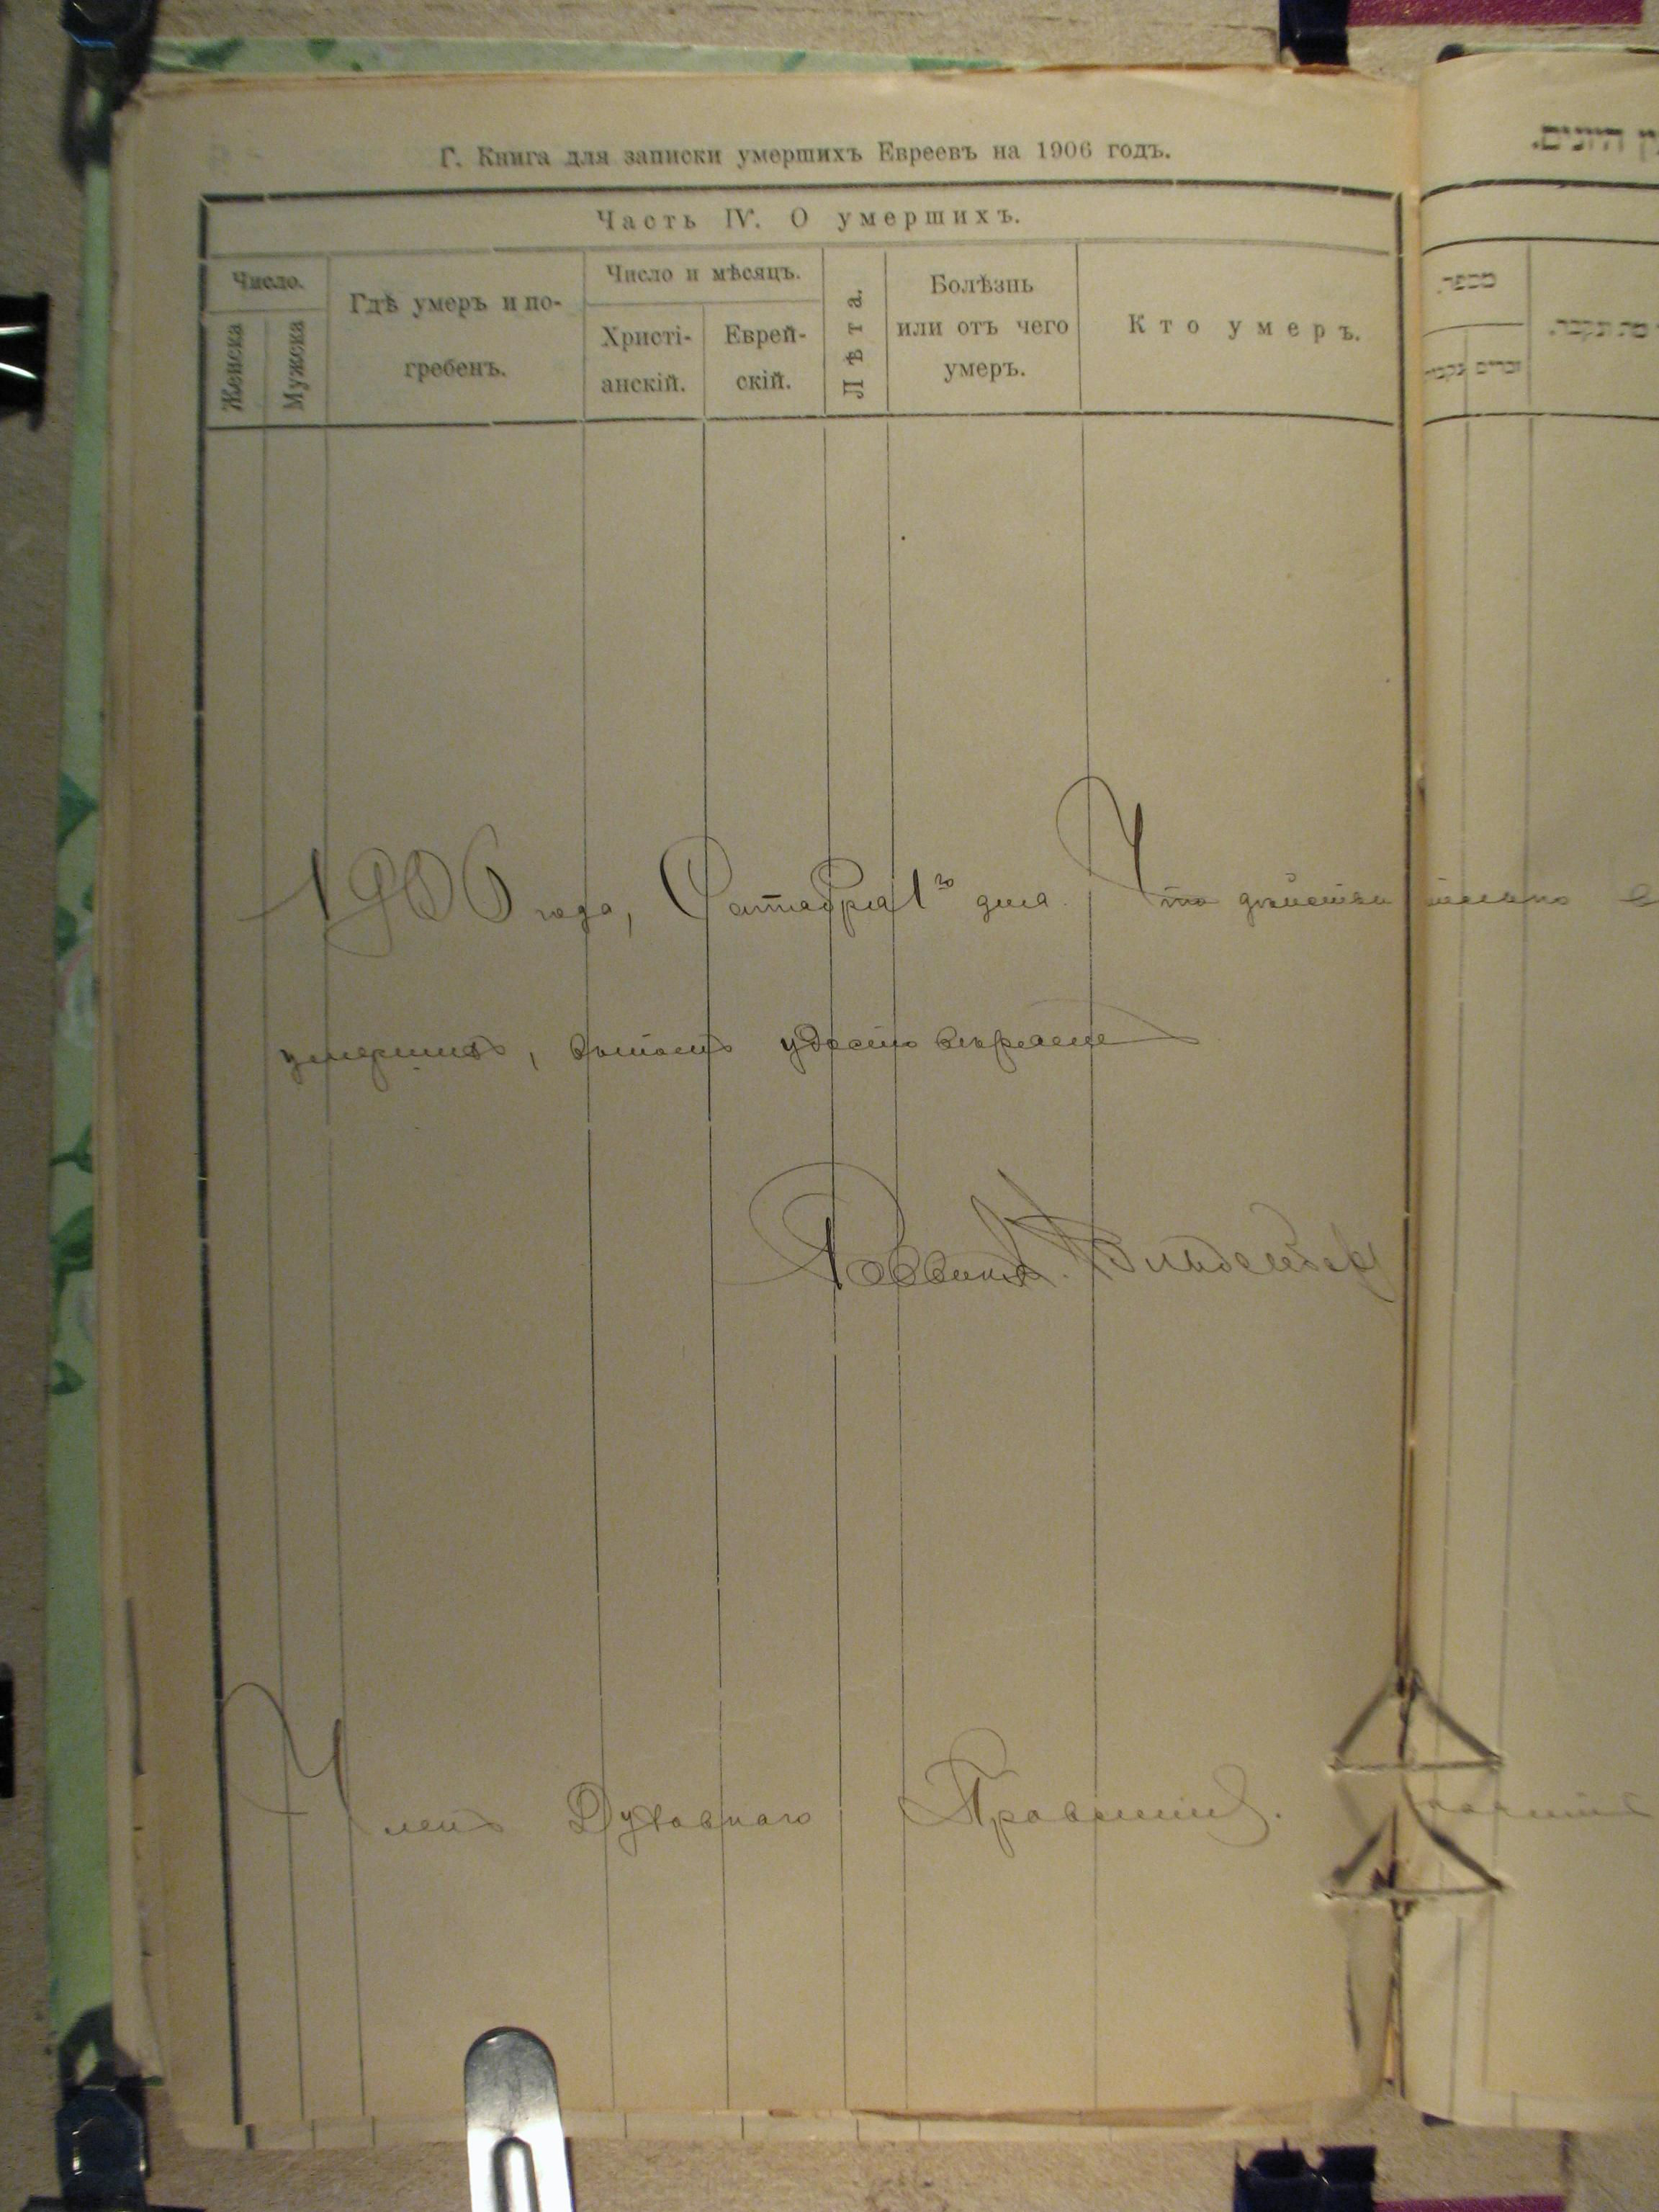 Г. Книга для записки умершихъ Евреевъ на 1906 годъ.
Часть IV. О умершихъ.
Число.
Женска
Мужска
Гдѣ умеръ и по-
гребенъ.
Число и мѣсяцъ.
Христі-
анскій.
Еврей-
скій.
Лѣта.
Болѣзнь
или отъ чего
умеръ.
Кто умеръ.
מספר
זכרים נקבות
1906 года, Октября 1го дня. Что действительно
умершихъ, въ томъ удостоверяем
Раввинъ
Членъ Духовнаго Правленія.